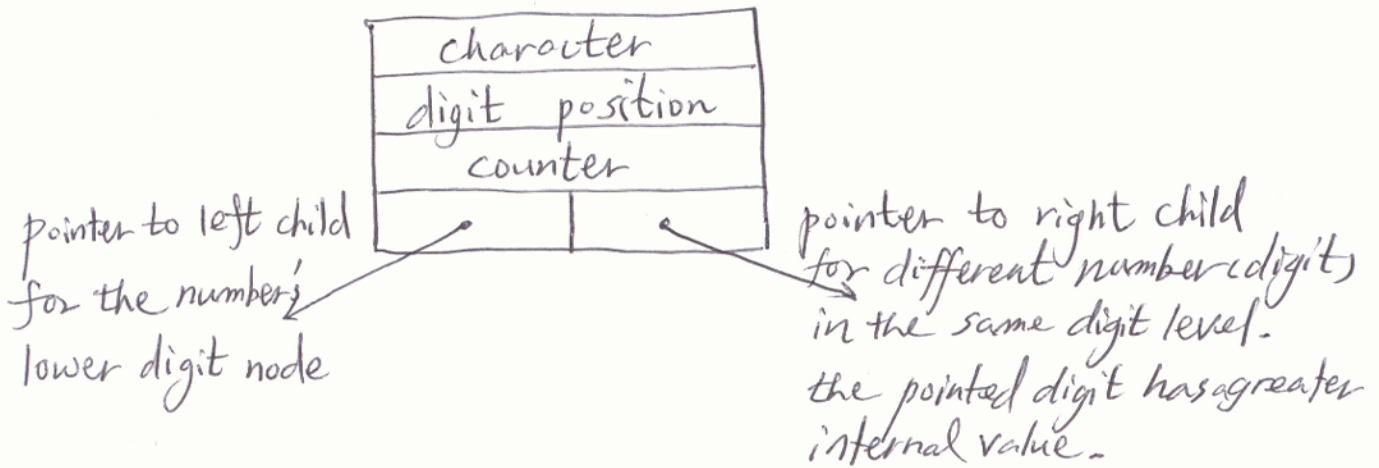 character
digit position
counter
pointer to left child
for the number's
lower digit node
pointer to right child
for different number(digit)
in the same digit level.
the pointed digit has a greater
internal value.